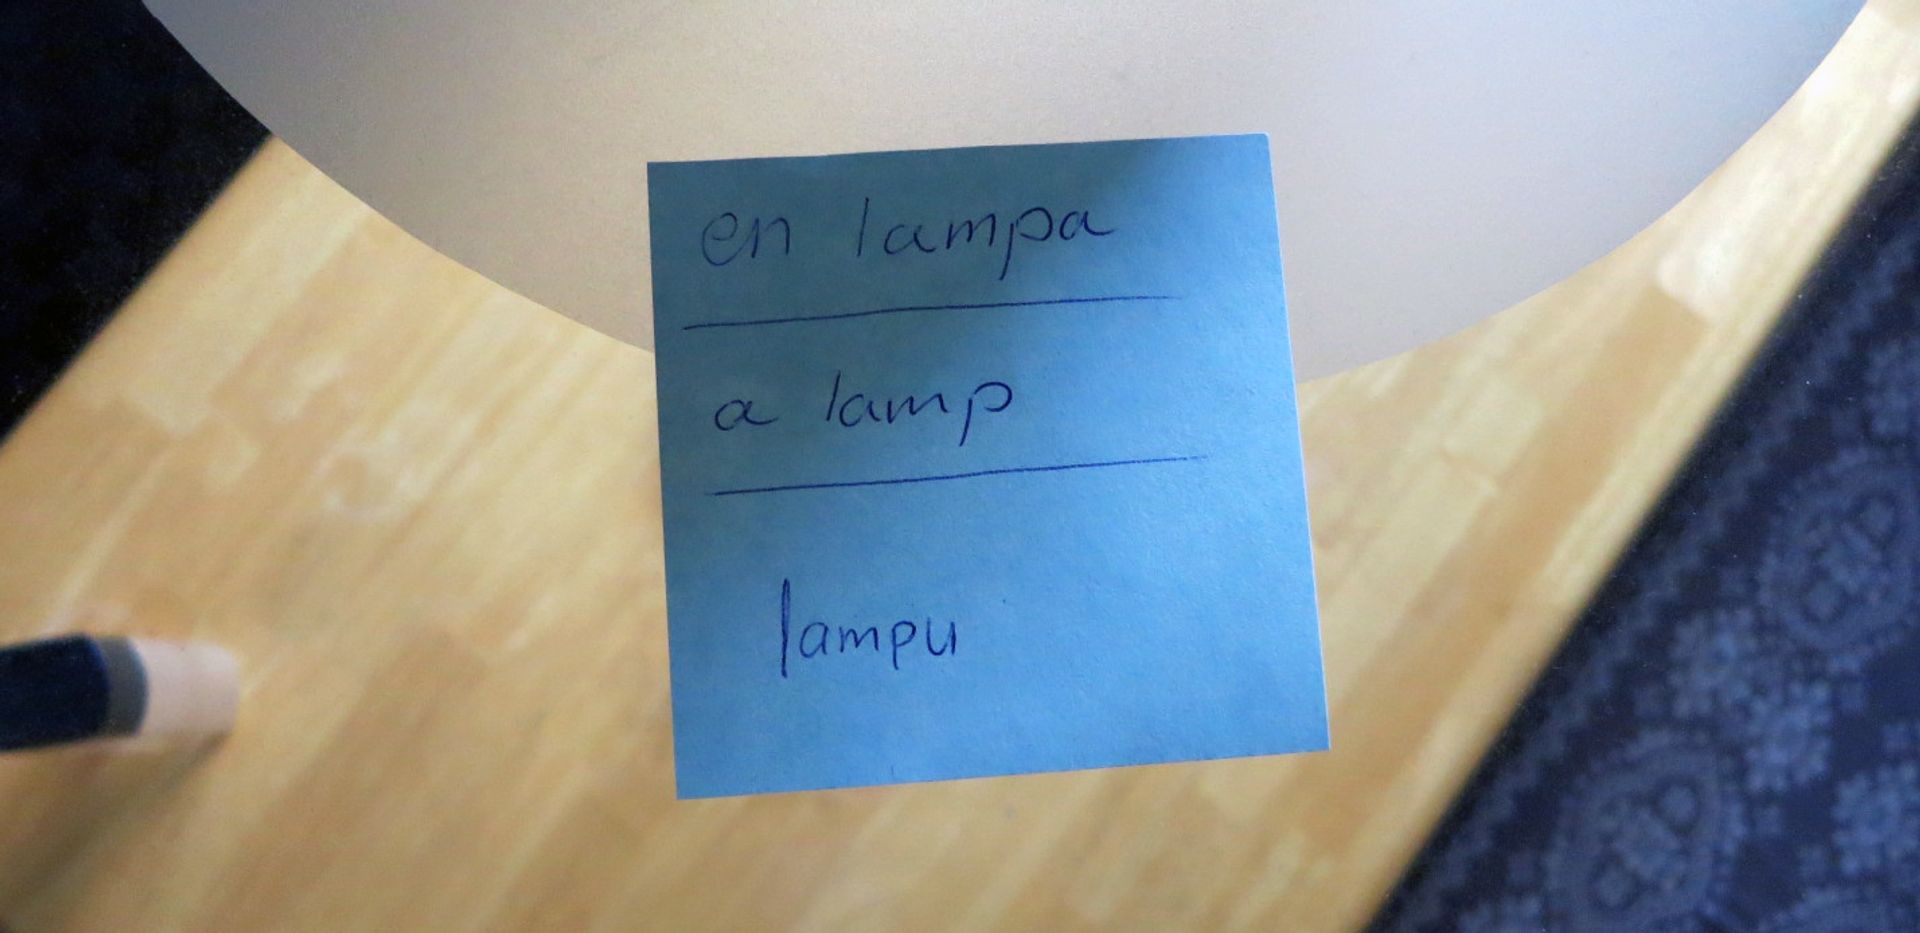 en lampa
a lamp
lampu